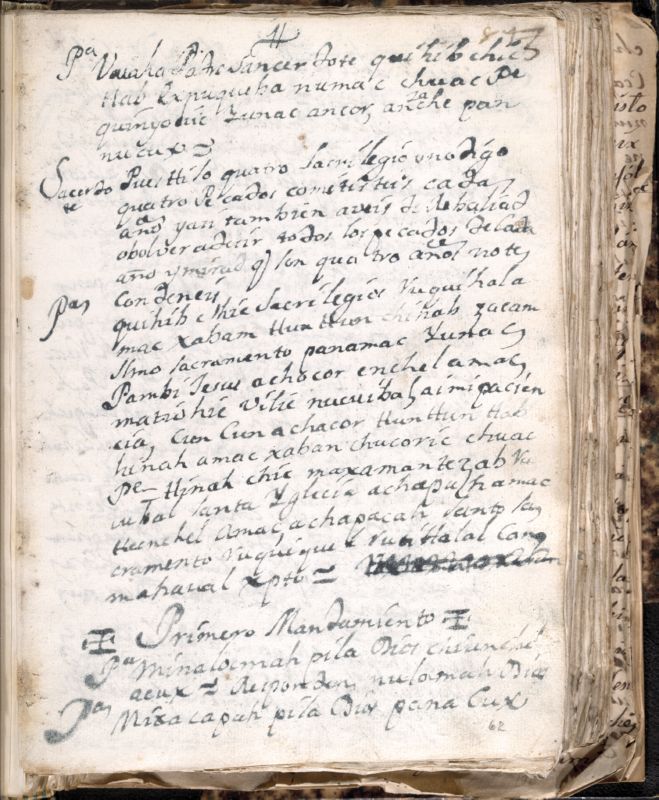 Pa Vacaha Padre Sancerdote quihib chic
Hab Expuqueha numac chuac Pe
quinyovic Lunac ancor, anche pan
nucux =
Sacerdote Pues Hilo quatro Sacrilegio vnodigo
quatro Pecados cometisteis cada
año yasi tambien aveis de
abolver adecir todos los pecados de cada
año y mirad q son quatro años no te
Condeneis
Pa quihib chic Sacrilegios Vuquihala
mac xabam Hun Hun chihab zacam
Smo Sacramento panamac Yunac
Pambi Jesus achocor enchel amac
matiohic vilic nucuibal aimipacien
cia, Cun Cunachacor Hun Hun Hab
hinah amac xaban chucoric chuac
Pe Hinah chic maxamantezab Vu
cubal Santa Yglecia achapach amac
Henchel Amac achapacah Santo Sa
cramento Vuquique l Vun Halal Can
mahaual xpto =
Primero Mandamiento
Pa Minaloemah pila Dios chiunchel
acux = Responden, nuloemah Dios
Pa Mixacapah pila Dios pana Cux
62